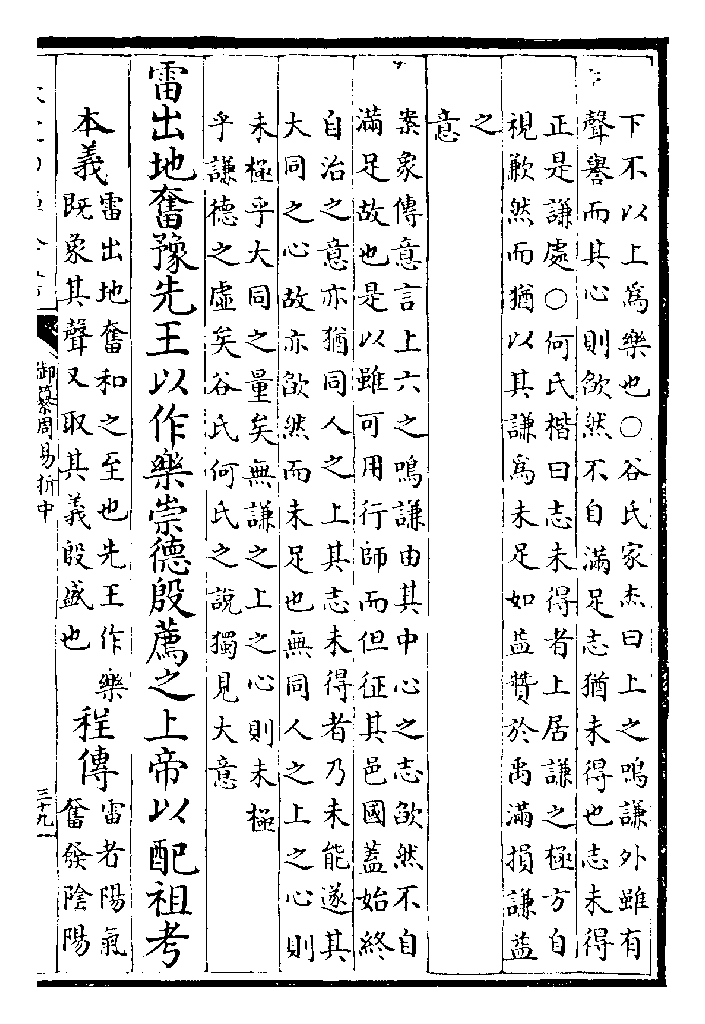 下不以上為樂也○谷氏家杰曰上之鳴謙外雖有
聲譽而其心則欿然不自滿足志猶未得也志未得
正是謙處○何氏楷曰志未得者上居謙之極方自
視歉然而猶以其謙為未足如益贊於禹滿損謙益
之
意
案象傳意言上六之鳴謙由其中心之志欿然不自
滿足故也是以雖可用行師而但征其邑國蓋始終
自治之意亦猶同人之上其志未得者乃未能遂其
大同之心故亦欿然而未足也無同人之上之心則
未極乎大同之量矣無謙之上之心則未極
乎謙德之虛矣谷氏何氏之說獨見大意
雷出地奮豫先王以作樂崇德殷薦之上帝以配祖考
本義
雷出地奮和之至也先王作樂
既象其聲又取其義殷盛也
程傳
雷者陽氣
奮發陰陽
御纂周易折中
三十九